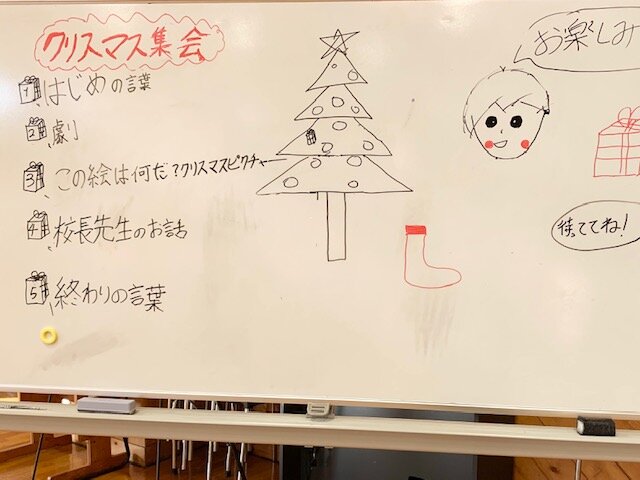 クリスマス集会
1、はじめの言葉
2、劇
3、この絵は何だ?クリスマスピクチャー
4、校長先生のお話
5、終わりの言葉
お楽しみ
待ててね!